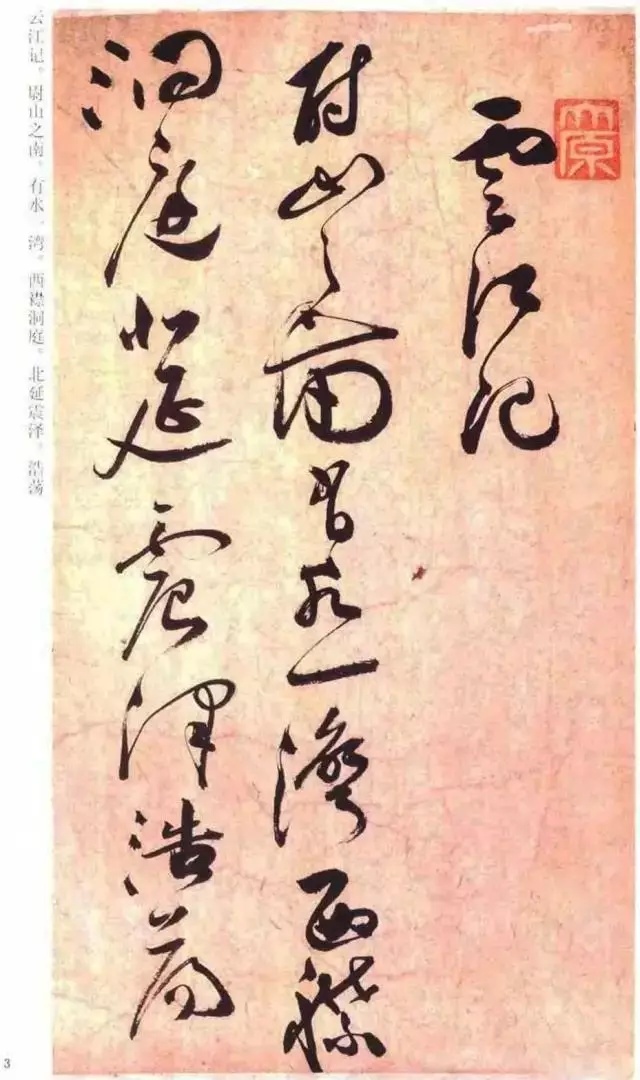 雲江記
尉山之南有水一灣西襟
洞庭北延震澤浩蕩
云江记。尉山之南。有水一湾。西襟洞庭。北延震泽。浩荡
3